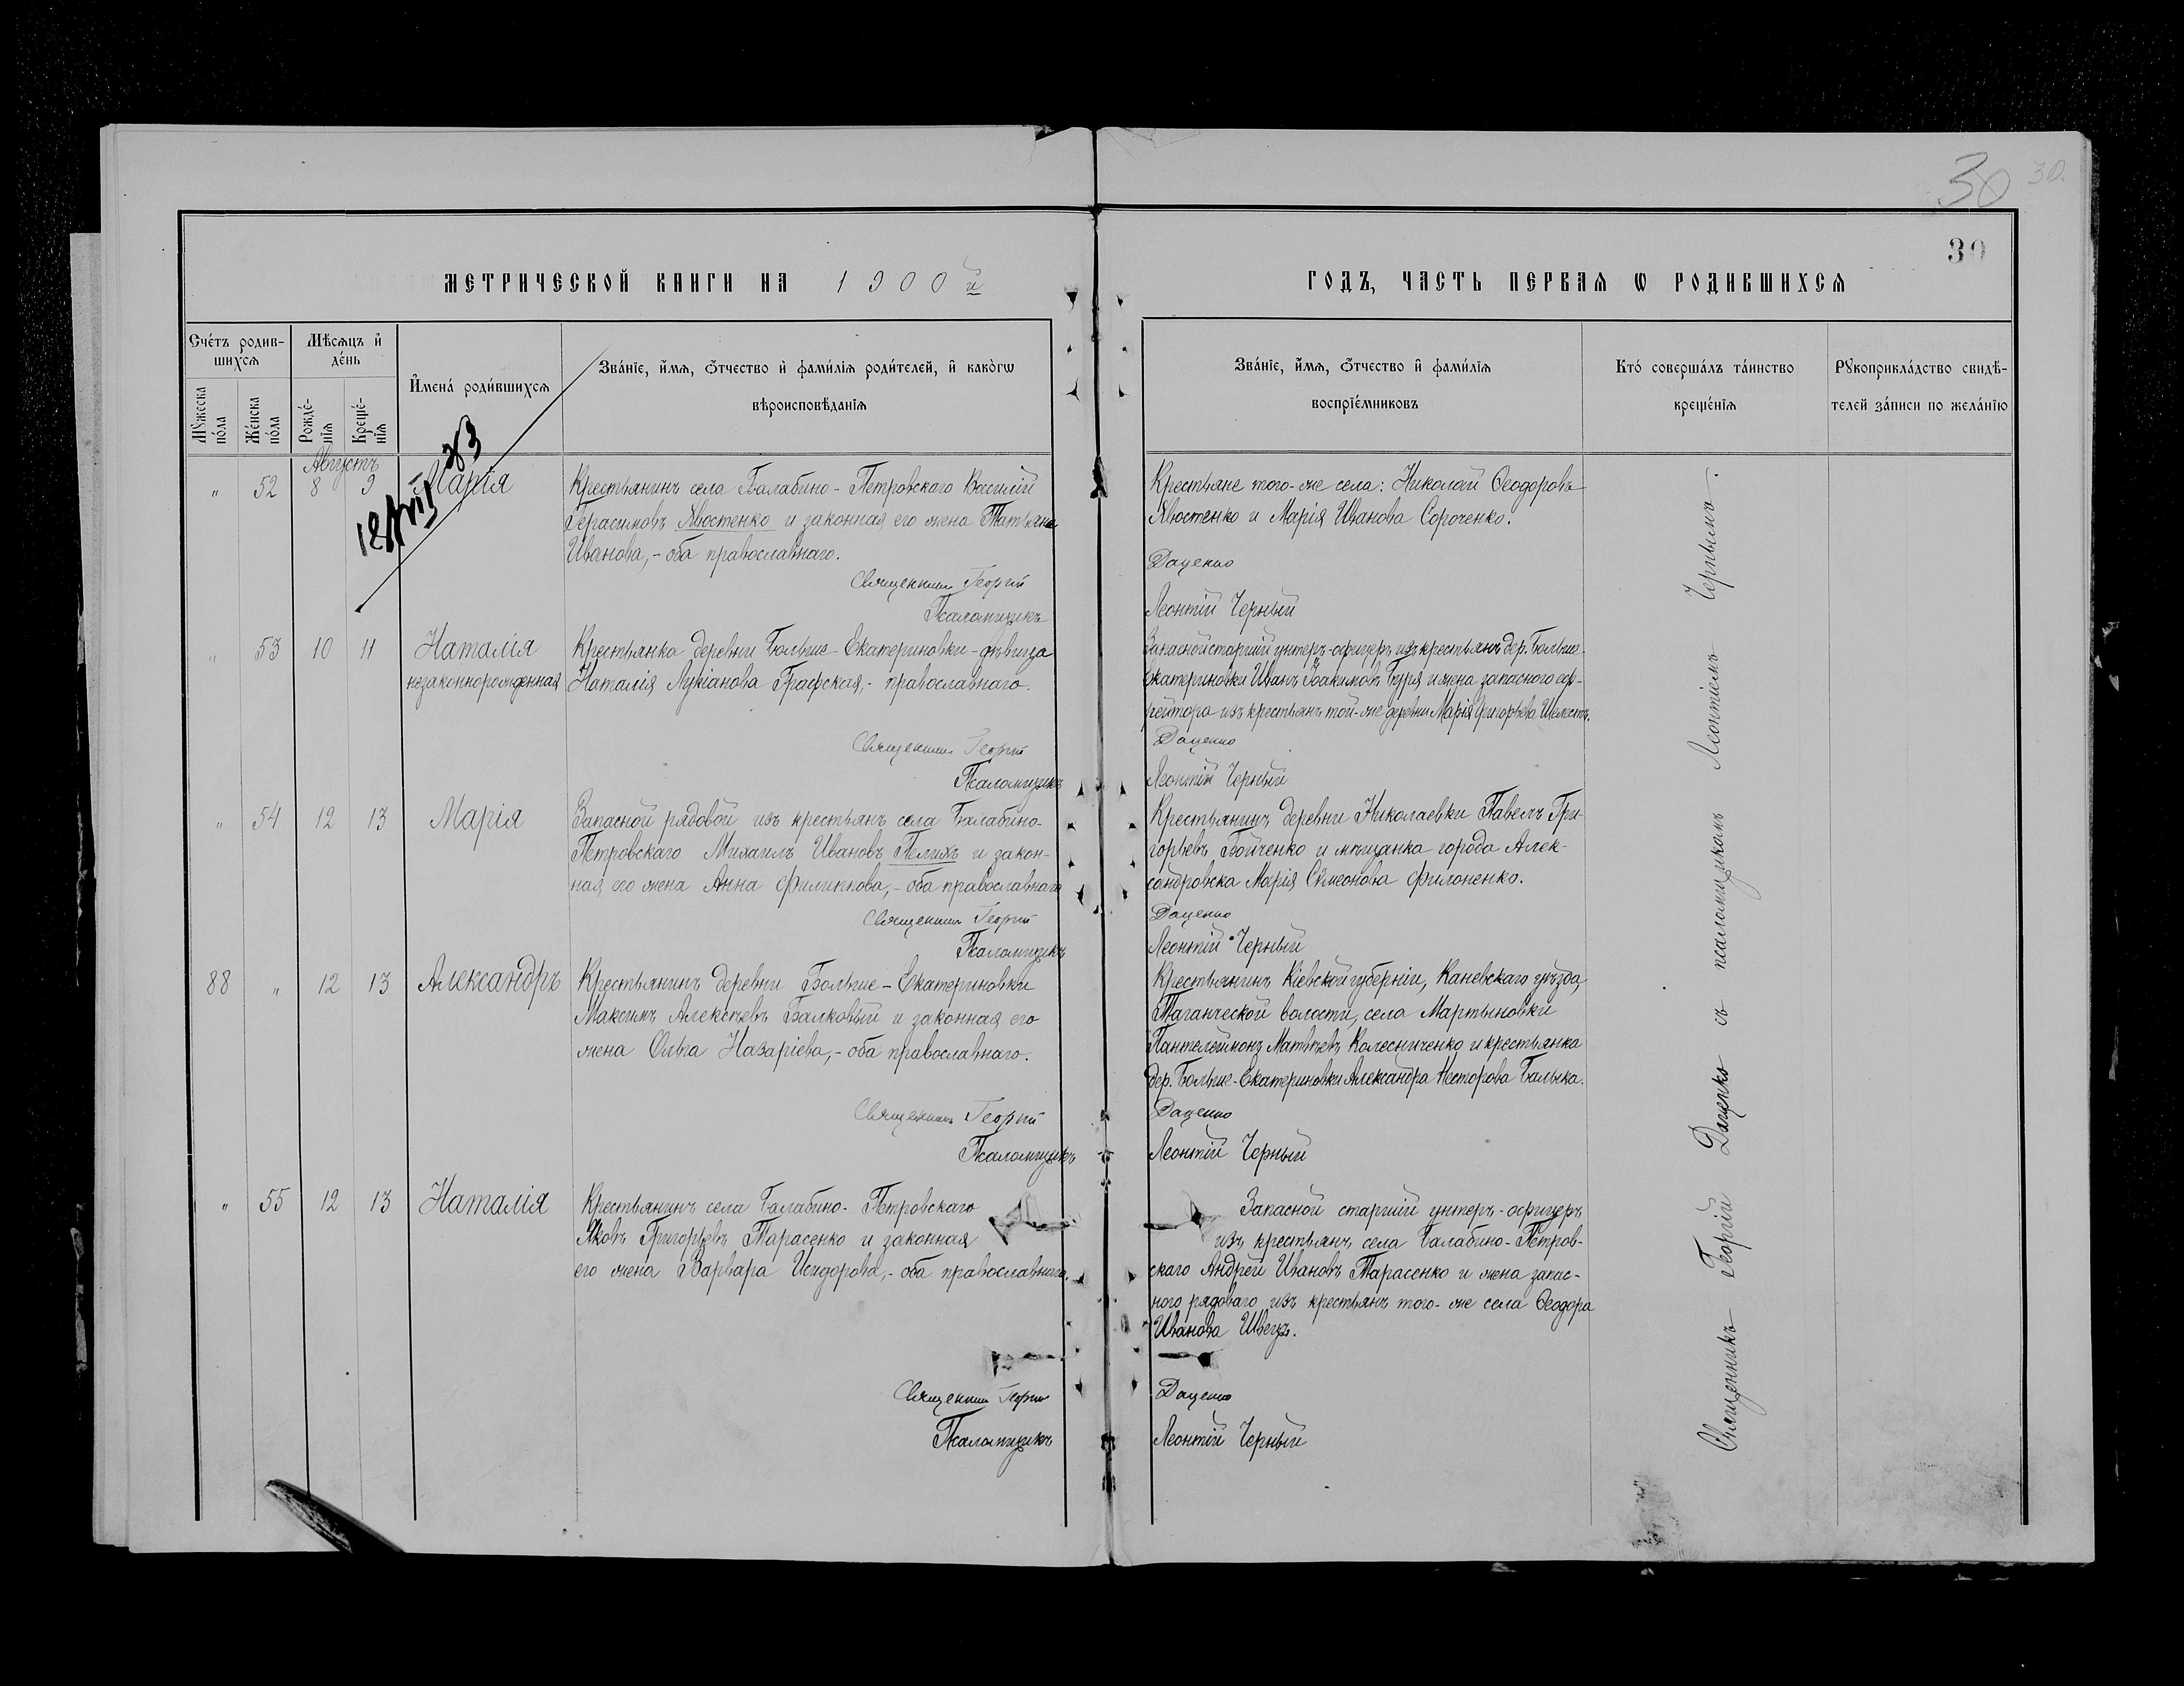 30 30.
30
МЕТРИЧЕСКОЙ КНИГИ НА 1900й
ГОДЪ, ЧАСТЬ ПЕРВАЯ Ѡ РОДИВШИХСЯ
Сче́тъ родив-
шихсѧ
Мꙋжеска по́ла
Же́нска по́ла
Мѣ́сѧцъ и҆ де́нь
Рожде́-нїѧ
Креще́-нїѧ
И҆мена̀ роди́вшихсѧ
Зва́нїе, и҆́мѧ, ѻ҆́тчество и҆ фами́лїѧ роди́телей, и҆ како́гѡ
вѣроисповѣ́данїѧ
Зва́нїе, и҆́мѧ, ѻ҆́тчество и҆ фами́лїѧ
воспрїе́мниковъ
Кто̀ соверша́лъ та́инство
креще́нїѧ
Рꙋкоприкла́дство свидѣ́-
телей за́писи по жела́нїю
Августъ
" 52 8 9 Марія
Крестьянинъ села Балабино-Петровскаго Василій
Герасимовъ Хвостенко и законная его жена Татьяна
Иванова,- оба православнаго.
Священникъ Георгій
Псаломщикъ
Крестьяне того-же села: Николай Ѳеодоровъ
Хвостенко и Марія Иванова Сороченко.
Даценко
Леонтій Черный
" 53 10 11 Наталія
незаконнорожденная
Крестьянка деревни Больше-Екатериновки-дѣвица
Наталія Лукіанова Графская,- православнаго.
Священникъ Георгій
Псаломщикъ
Запасной старшій унтеръ-офицеръ изъ крестьянъ дер. Больше-
Екатериновки Иванъ Іоакимовъ Буря и жена запасного еф-
рейтора изъ крестьянъ той-же деревни Марія Григорьева Шелестъ.
Даценко
Леонтій Черный
" 54 12 13 Марія
Запасной рядовой изъ крестьянъ села Балабино-
Петровскаго Михаилъ Ивановъ Пелихъ и закон-
ная его жена Анна Филиппова,- оба православнаго
Священникъ Георгій
Псаломщикъ
Крестьянинъ деревни Николаевки Павелъ Гри-
горьевъ Бойченко и мѣщанка города Алек-
сандровска Марія Сѵмеонова Филоненко.
Даценко
Леонтій Черный
88 " 12 13 Александръ
Крестьянинъ деревни Больше-Екатериновки
Максимъ Алексѣевъ Балковый и законная его
жена Ольга Назаріева,- оба православнаго.
Священникъ Георгій
Псаломщикъ
Крестьянинъ Кіевской губерніи, Каневскаго уѣзда,
Таганческой волости, села Мартыновки
Пантелеймонъ Матвѣевъ Колесниченко и крестьянка
дер. Больше-Екатериновки Александра Несторова Балыка.
Даценко
Леонтій Черный
" 55 12 13 Наталія
Крестьянинъ села Балабино-Петровскаго
Яковъ Григорьевъ Тарасенко и законная
его жена Варвара Исидорова,- оба православнаго.
Священникъ Георгій
Псаломщикъ
Запасной старшій унтеръ-офицеръ
изъ крестьянъ села Балабино-Петров-
скаго Андрей Ивановъ Тарасенко и жена запас-
ного рядоваго изъ крестьянъ того-же села Ѳеодора
Иванова Швецъ.
Даценко
Леонтій Черный
Священникъ Георгій Даценко съ псаломщикомъ Леонтіемъ Чернымъ.